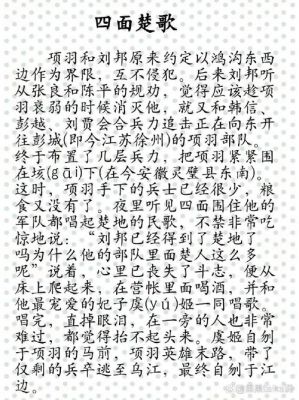 四面楚歌
项羽和刘邦原来约定以鸿沟东西
边作为界限，互不侵犯。后来刘邦听
从张良和陈平的规劝，觉得应该趁项
羽衰弱的时候消灭他，就又和韩信、
彭越、刘贾会合兵力追击正在向东开
往彭城(即今江苏徐州)的项羽部队。
终于布置了几层兵力，把项羽紧紧围
在垓(gāi)下(在今安徽灵璧县东南)。
这时，项羽手下的兵士已经很少，粮
食又没有了。夜里听见四面围住他的
军队都唱起楚地的民歌，不禁非常吃
惊地说：“刘邦已经得到了楚地了
吗为什么他的部队里面楚人这么多
呢”说着，心里已丧失了斗志，便从
床上爬起来，在营帐里面喝酒，并和
他最宠爱的妃子虞(yú)姬一同唱歌。
唱完，直掉眼泪，在一旁的人也非常
难过，都觉得抬不起头来。虞姬自刎
于项羽的马前，项羽英雄末路，带了
仅剩的兵卒逃至乌江，最终自刎于江
边。